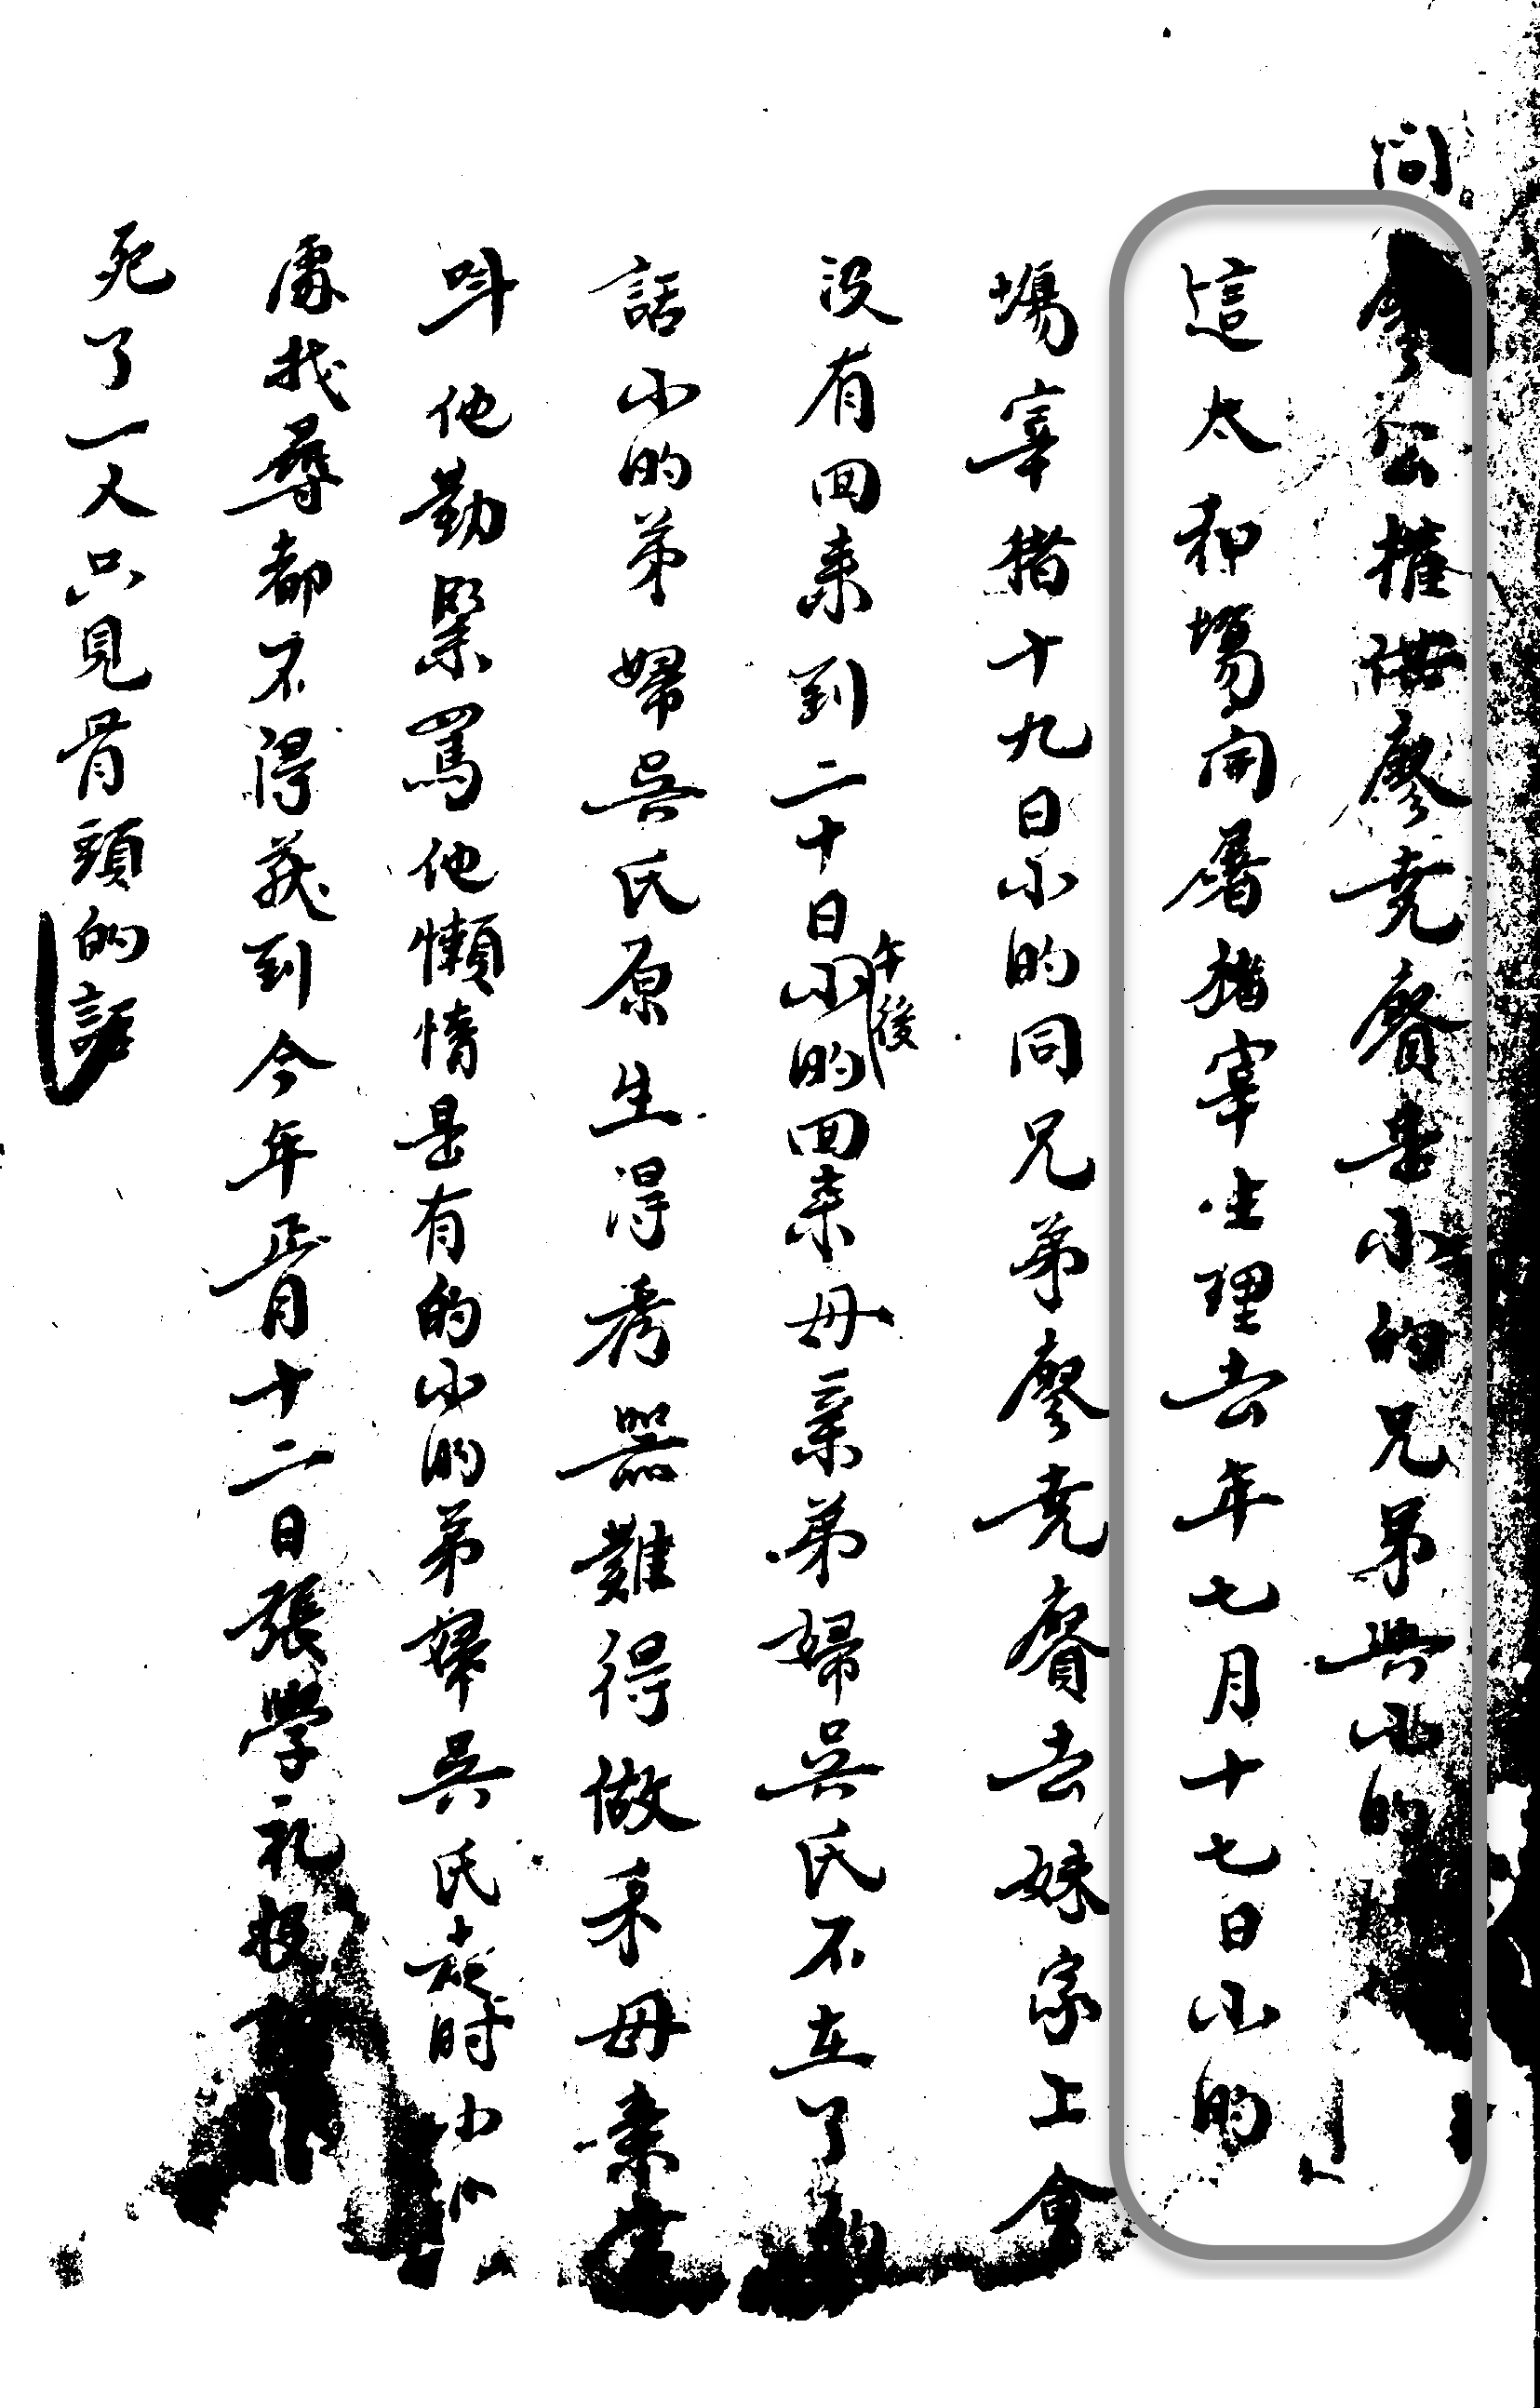 問
廖公權供廖堯賡是小的兄弟與小的
這太和場開屠猪宰生理去年七月十七日小的
場宰猪十九日小的同兄弟廖堯賡去妹家上會
没有回来到二十日午後小的回来母亲弟婦吳氏不在了的
話小的弟婦吳氏原生得秀器難得做釆毋
叫他勤緊罵他懶惰是有的小的弟婦吳氏走时小
處找尋都不得获到今年正月十二日張學礼投
死了一人只見骨頭的話